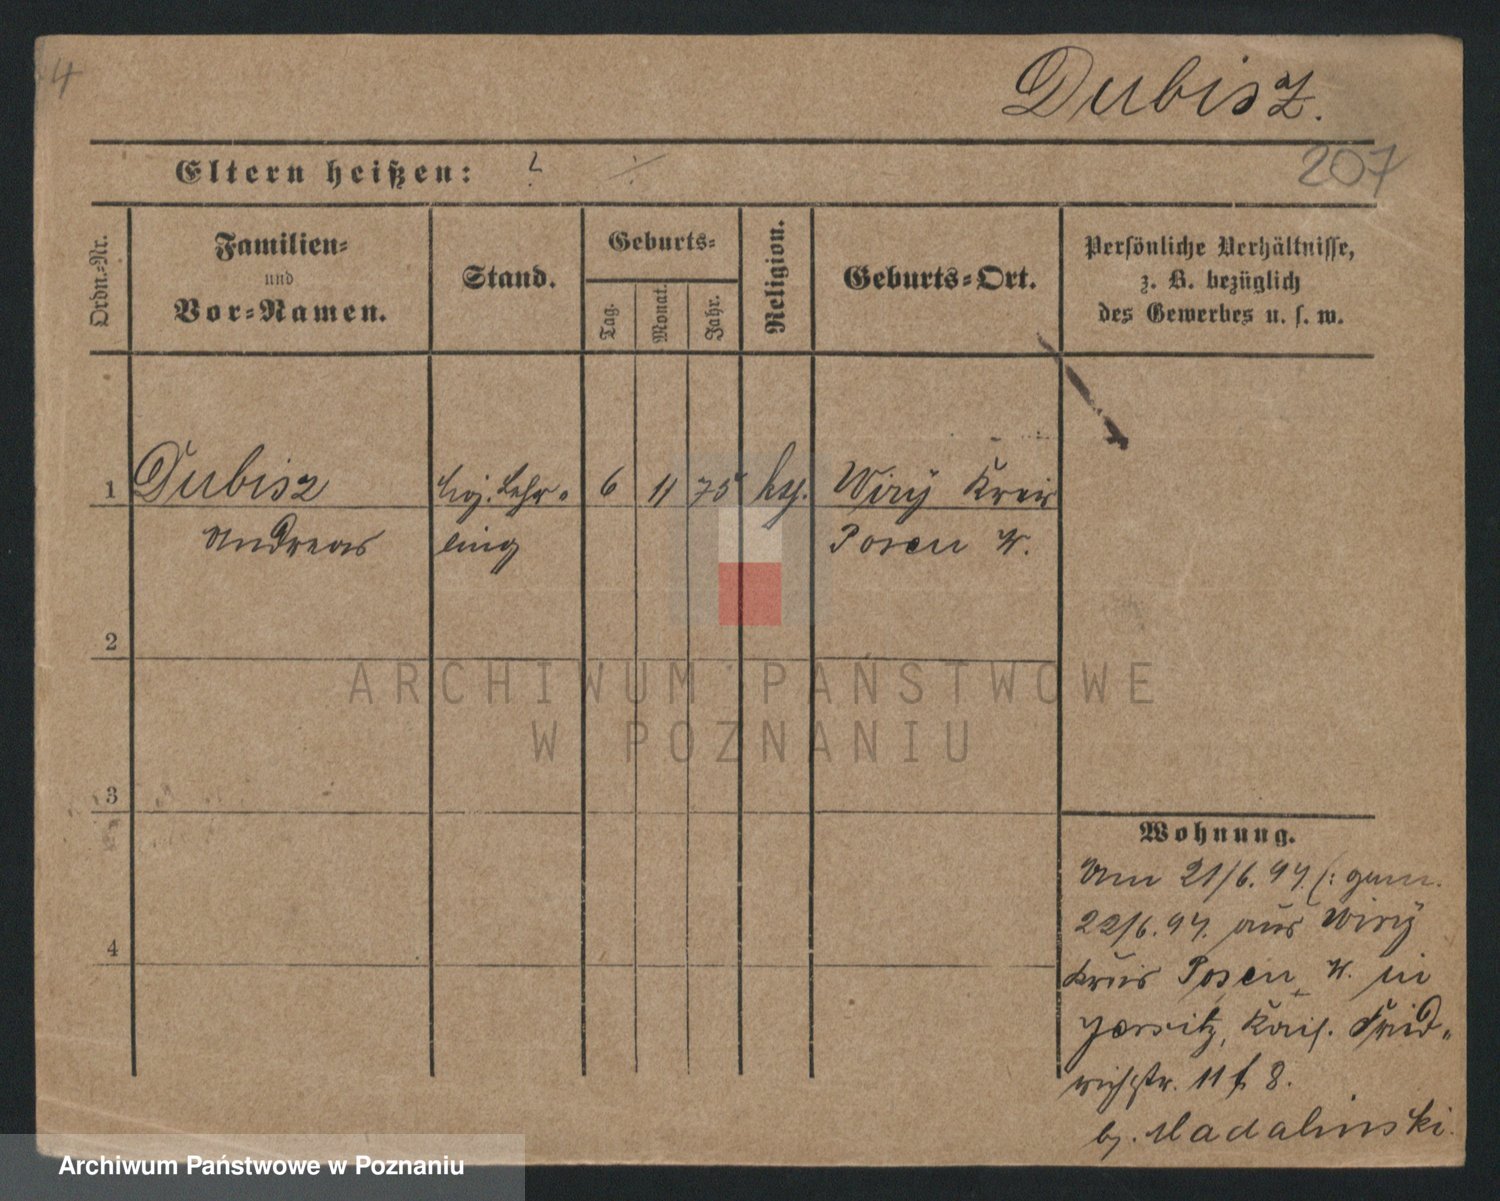 4
Dubisz.
207
Eltern heißen: ? ./.
Ordn.-Nr.
Familien-
und
Vor-Namen.
Stand.
Geburts-
Tag.
Monat.
Jahr.
Religion.
Geburts-Ort.
Persönliche Verhältnisse,
z. B. bezüglich
des Gewerbes u. s. w.
1 Dubisz Lehr- 6 11 75 Wiry Kreis
Andreas ling Posen W.
2
3
4
Wohnung.
Am 21/6. 97. (: gem.
22/6. 97. aus Wiry
Kreis Posen W. in
Jersitz, Kais. Fried-
richstr. 11 f 8.
b. Madalinski.
ARCHIWUM PAŃSTWOWE
W POZNANIU
Archiwum Państwowe w Poznaniu